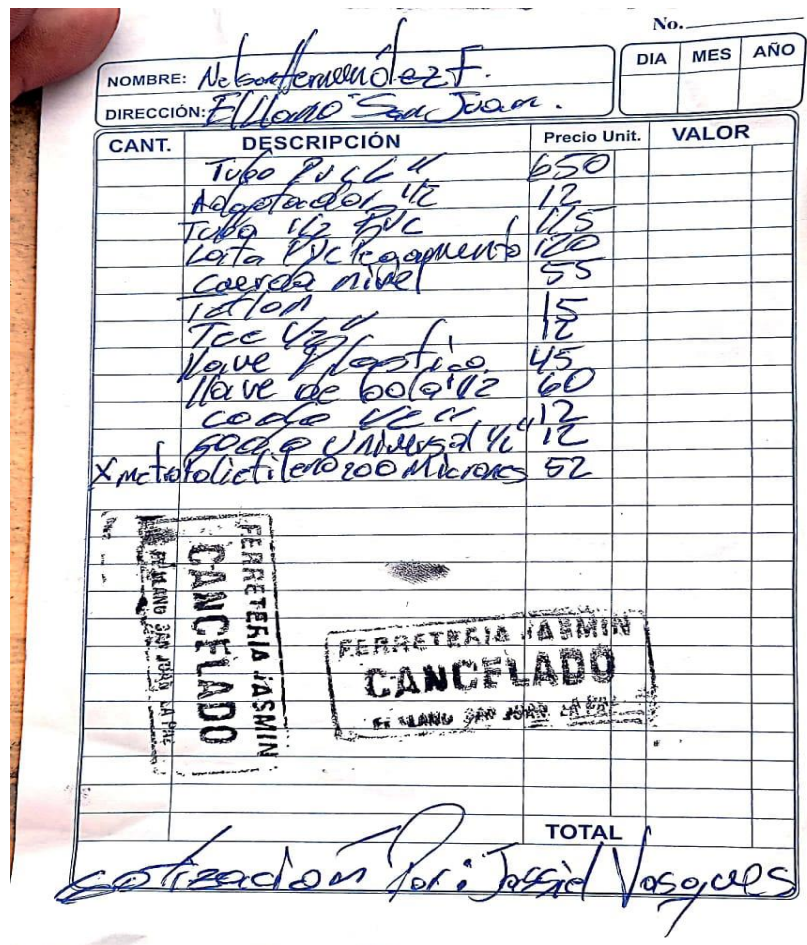 No.
NOMBRE: Nelson Hernández F.
DIA MES AÑO
DIRECCIÓN: El Llano San Juan.
CANT. DESCRIPCIÓN Precio Unit. VALOR
Tubo PVC 650
Adaptador 1/2 12
Tubo 1/2 PVC 115
Lata PVC Pegamento 120
Cuerda nivel 55
Teflon 15
Tee 1/2" 12
llave Plastico 45
llave de bola 1/2 60
codo 12
codo Universal 1/2" 12
X metro Polietileno 200 Micrones 52
FERRETERIA JASMIN
CANCELADO
EL LLANO SAN JUAN LA PAZ
FERRETERIA JASMIN
CANCELADO
EL LLANO SAN JUAN LA PAZ
TOTAL
cotizacion Por: Jassiel Vasques